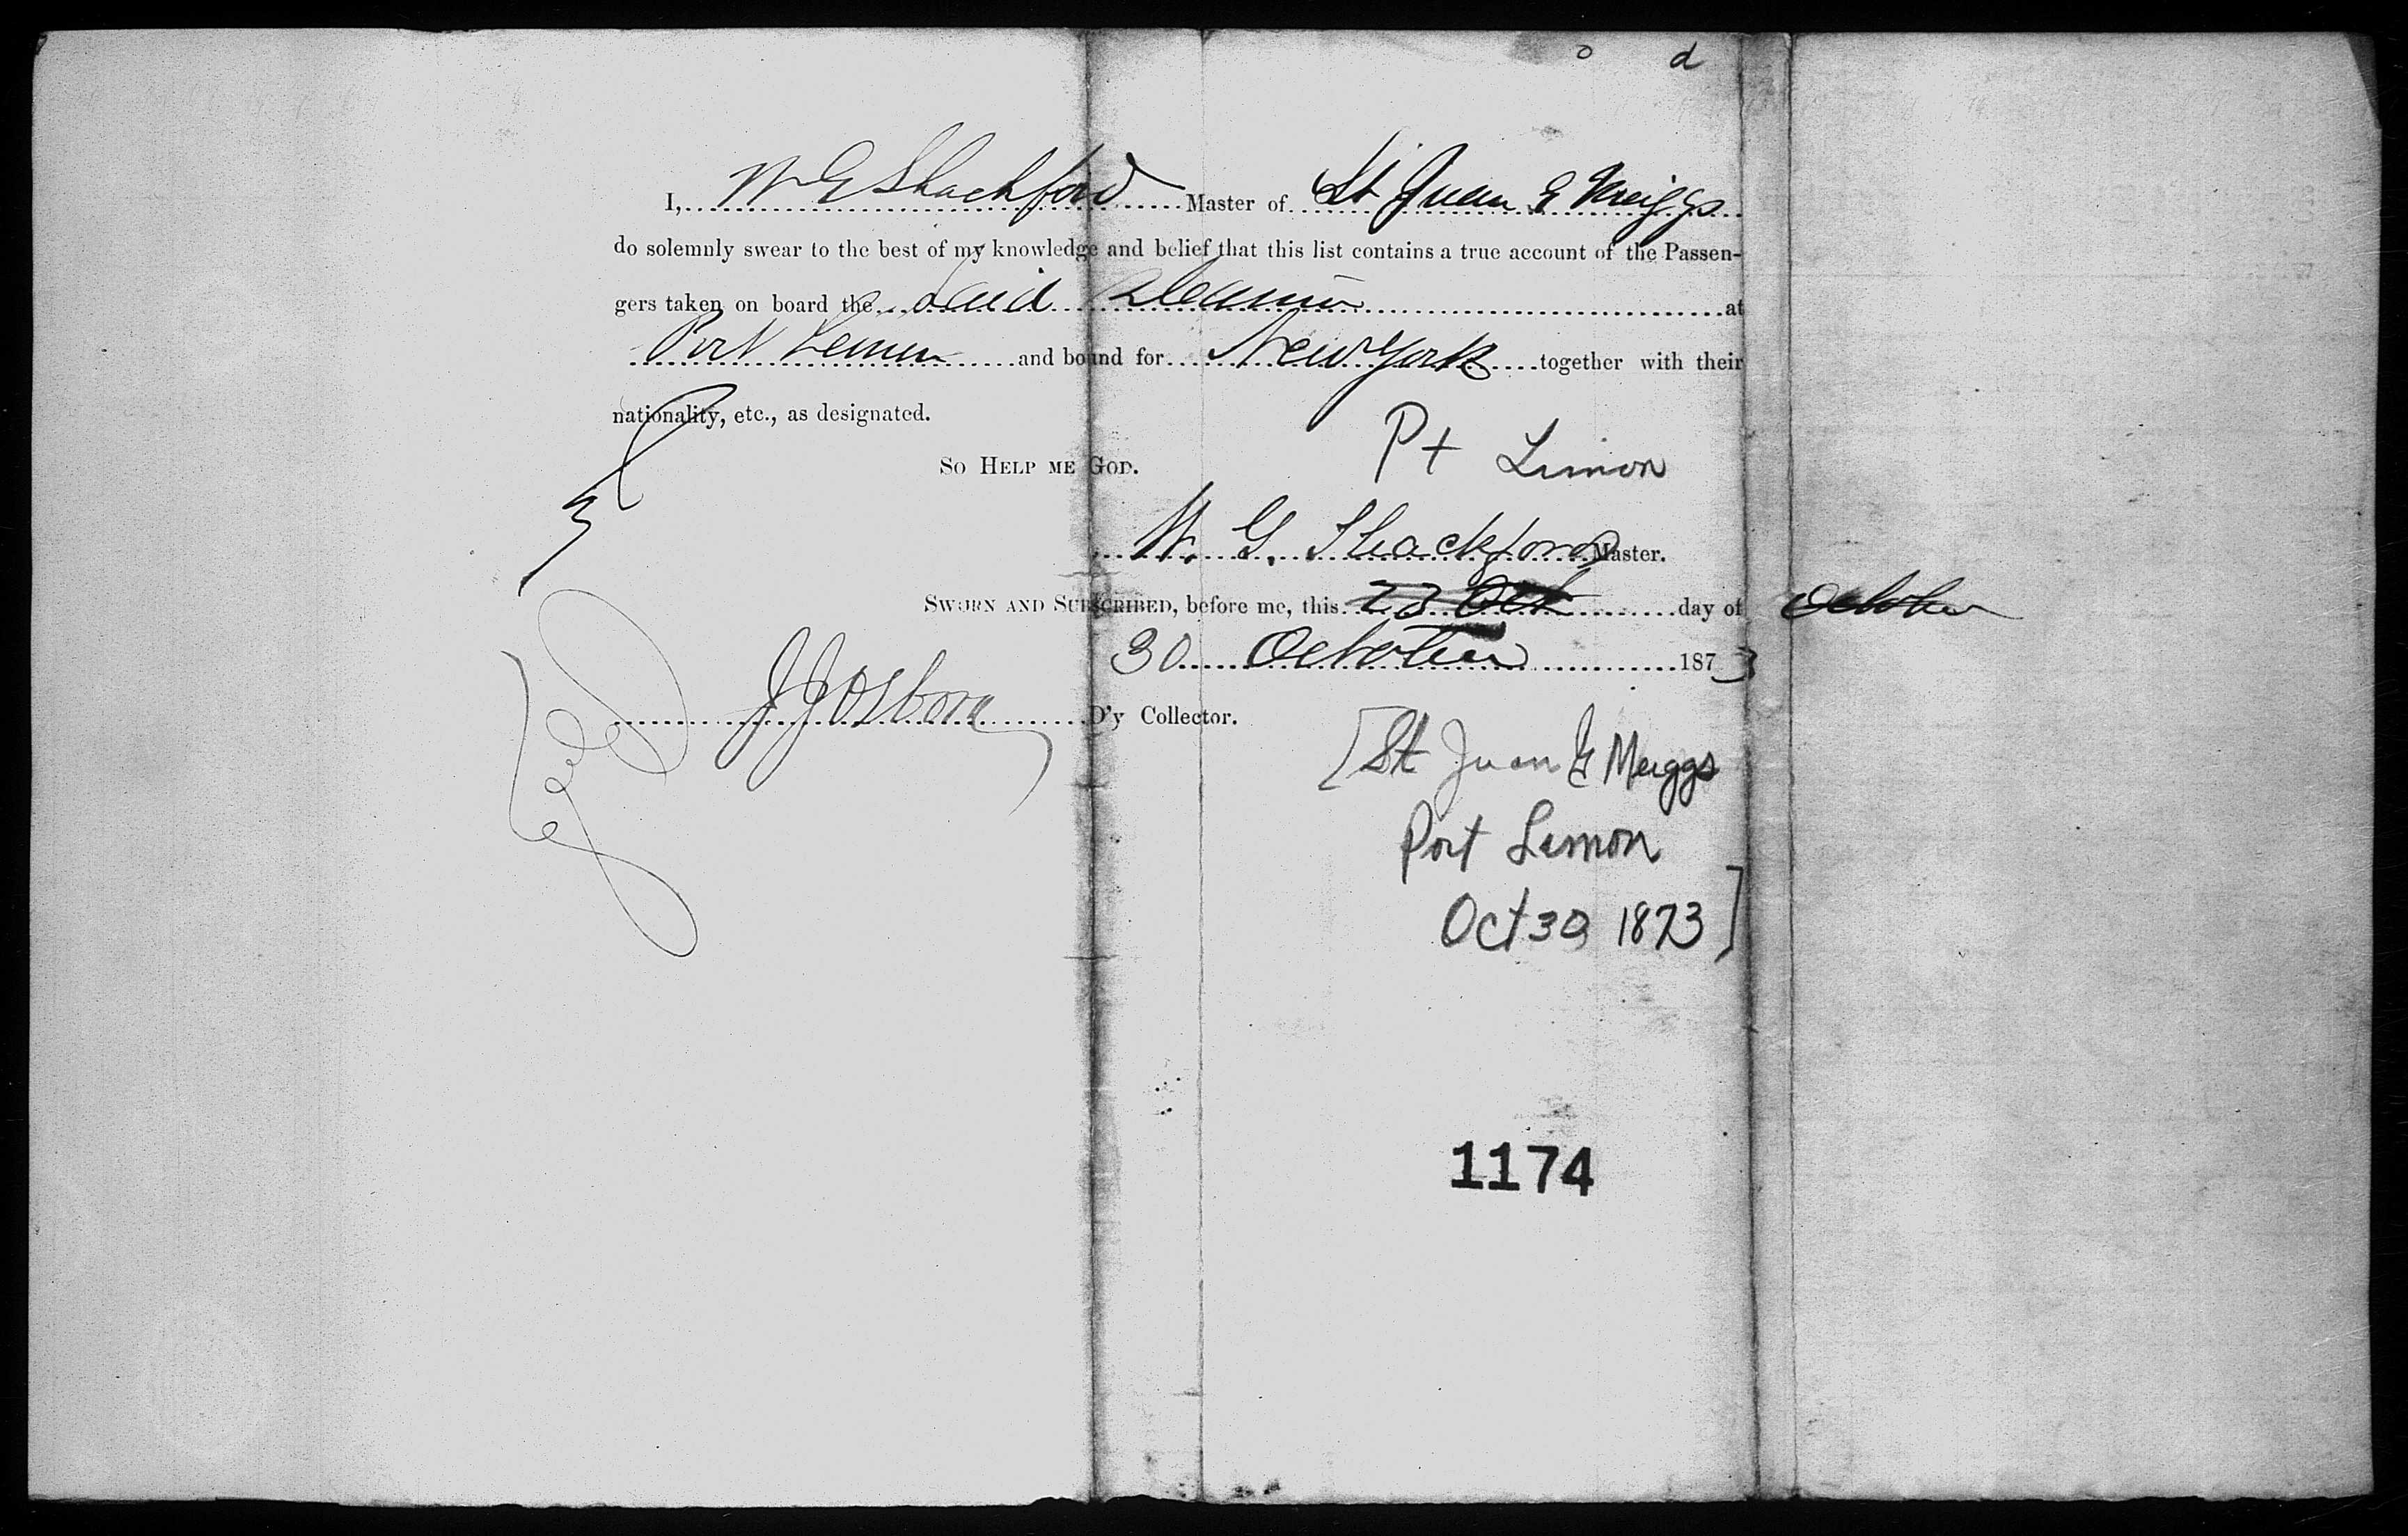 o d
I, W G Shackford Master of St Juan G Meiggs
do solemnly swear to the best of my knowledge and belief that this list contains a true account of the Passen-
gers taken on board the said Steamer at
Port Lemon and bound for New York together with their
nationality, etc., as designated.
So Help me God.
Pt Limon
W. G. Shackford Master.
Sworn and Subscribed, before me, this 23 Oct day of October
30 October 1873
J J Osborn D'y Collector.
[St Juan G Meiggs
Port Limon
Oct 30 1873]
1174